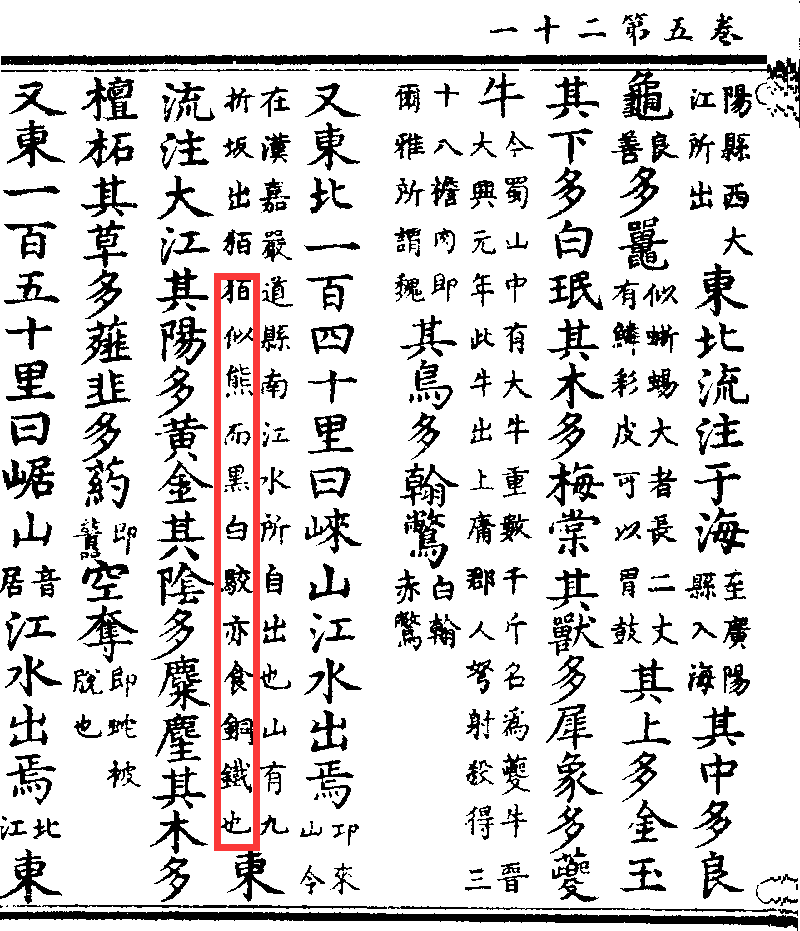 卷五第二十一
陽縣西大江所出東北流注于海至廣陽縣入海其中多良
龜良善多鼉似蜥蜴大者長二丈有鱗彩皮可以冒鼓其上多金玉
其下多白珉其木多梅棠其獸多犀象多夔
牛今蜀山中有大牛重數千斤名爲夔牛晉大興元年此牛出上庸郡人弩射殺得三
十八檐肉即爾雅所謂魏其鳥多翰鷩白翰赤鷩
又東北一百四十里曰崍山江水出焉邛來山今
在漢嘉嚴道縣南江水所自出也山有九折坂出狛狛似熊而黒白駮亦食銅鐵也東
流注大江其陽多黄金其陰多麋麈其木多
檀柘其草多薤韭多葯即虈空奪即蛇被脫也
又東一百五十里曰崌山音居江水出焉北江東